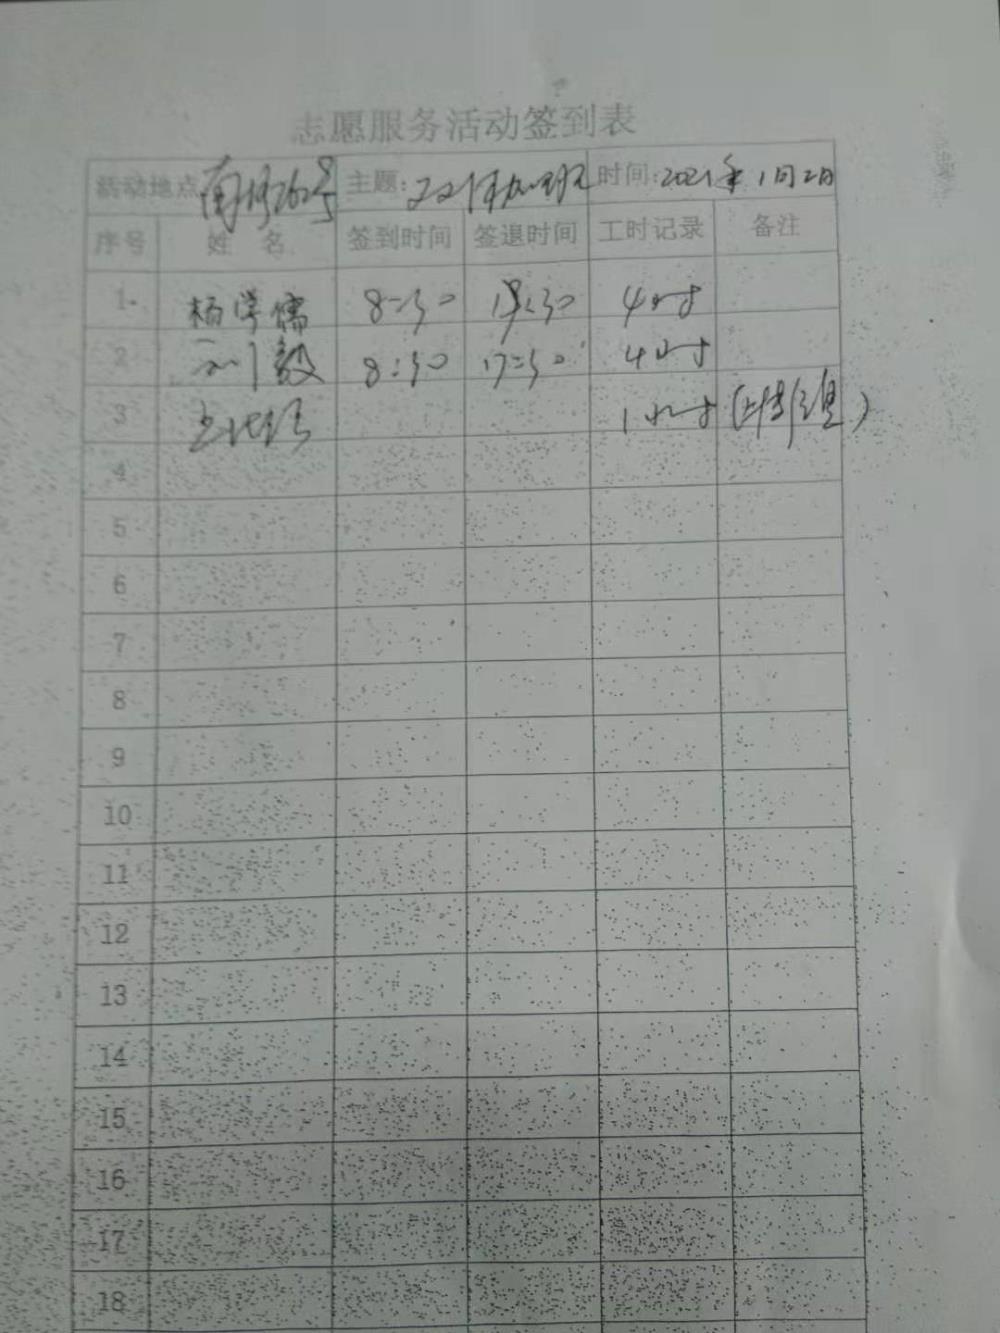 志愿服务活动签到表
活动地点 主题: 时间:2021年1月2日
序号 姓 名 签到时间 签退时间 工时记录 备注
1. 杨学儒 8:30 :30 4小时
2 毅 8:30 17:30 4小时
3 1小时
4
5
6
7
8
9
10
11
12
13
14
15
16
17
18